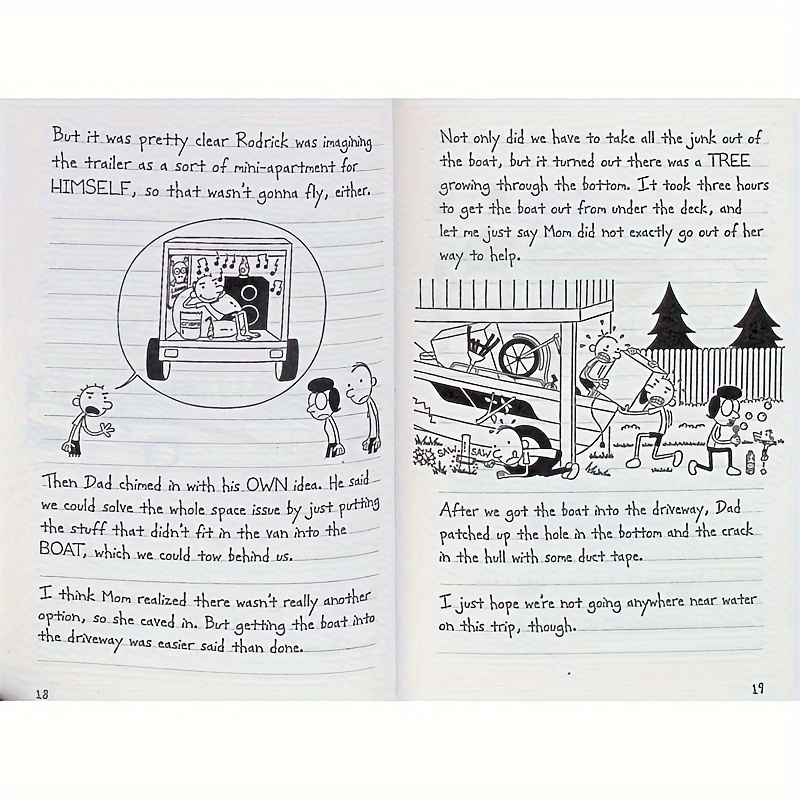 But it was pretty clear Rodrick was imagining
the trailer as a sort of mini-apartment for
HIMSELF, so that wasn't gonna fly, either.
Then Dad chimed in with his OWN idea. He said
we could solve the whole space issue by just putting
the stuff that didn't fit in the van into the
BOAT, which we could tow behind us.
I think Mom realized there wasn't really another
option, so she caved in. But getting the boat into
the driveway was easier said than done.
18
Not only did we have to take all the junk out of
the boat, but it turned out there was a TREE
growing through the bottom. It took three hours
to get the boat out from under the deck, and
let me just say Mom did not exactly go out of her
way to help.
SAW SAW
After we got the boat into the driveway, Dad
patched up the hole in the bottom and the crack
in the hull with some duct tape.
I just hope we're not going anywhere near water
on this trip, though.
19